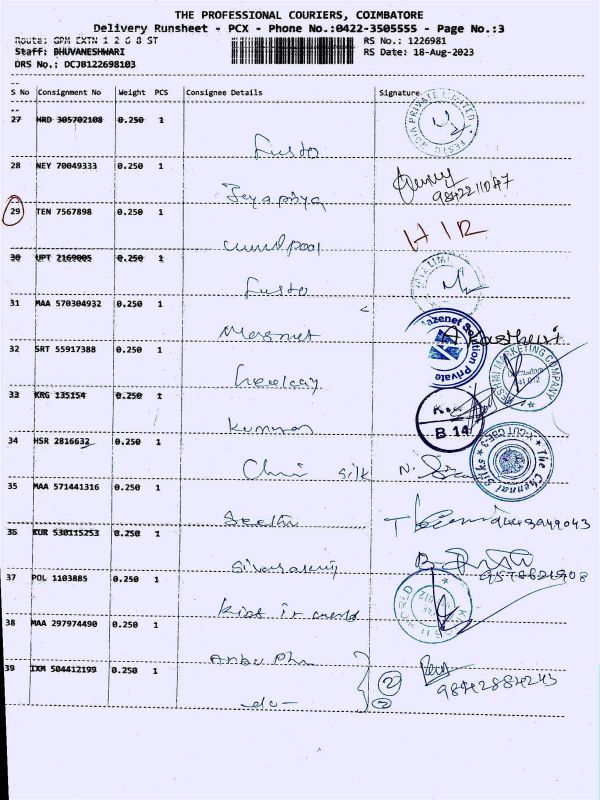 THE PROFESSIONAL COURIERS, COIMBATORE
Delivery Runsheet - PCX - Phone No.:0422-3505555 - Page No.:3
Route: GPM EXTN 1 2 6 8 ST
RS No.: 1226981
Staff: BHUVANESHWARI
RS Date: 18-Aug-2023
DRS No.: DCJB122698103
S No Consignment No Weight PCS Consignee Details Signature
27 HRD 305702108 0.250 1
Festo
28 NEY 70049333 0.250 1
Jeyapriya
9842211047
29 TEN 7567898 0.250 1
HIR
30 UPT 2169005 0.250 1
Festo
31 MAA 570304932 0.250 1
Magnet
Mazenet Solution Private
32 SRT 55917388 0.250 1
RESHMI MARKETING COMPANY
33 KRG 135154 0.250 1
B.14
34 HSR 2816632 0.250 1
silk
The Chennai Silks
35 MAA 571441316 0.250 1
36 KUR 530115253 0.250 1
37 POL 1103885 0.250 1
kids in world
38 MAA 297974490 0.250 1
39 IXM 504412199 0.250 1
-do-
2
2
9842884243